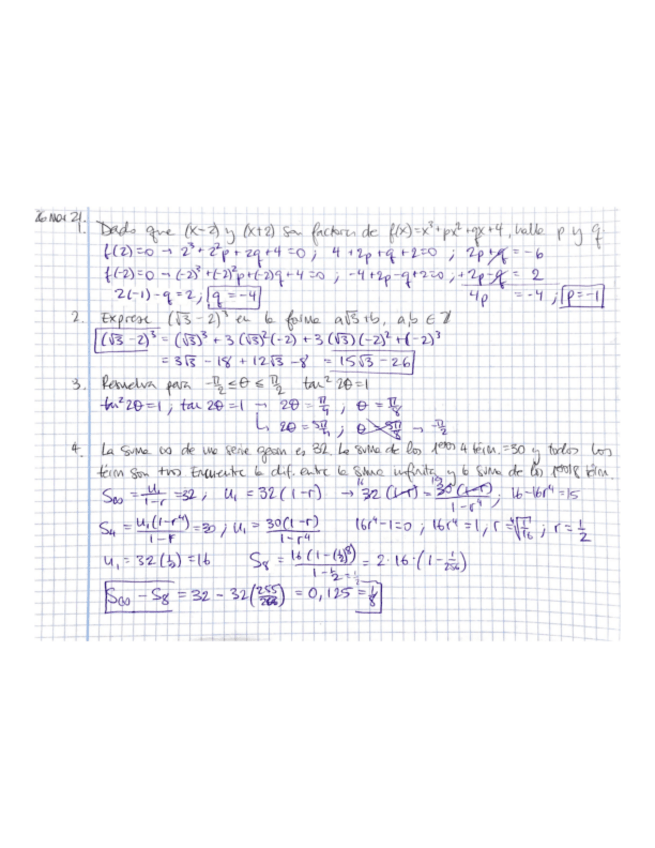 26 Nov 21.
1. Dado que (x-2) y (x+2) son factores de f(x)=x³+px²+qx+4, halle p y q.
f(2)=0 → 2³+2²p+2q+4=0 ; 4+2p+q+2=0 ; 2p+q=-6
f(-2)=0 → (-2)³+(-2)²p+(-2)q+4=0 ; -4+2p-q+2=0 ; +2p-q = 2
2(-1)-q=2, q=-4 4p = -4 ; p=-1
2. Exprese (√3-2)³ en la forma a√3+b, a,b ∈ ℤ
(√3-2)³ = (√3)³+3(√3)²(-2)+3(√3)(-2)²+(-2)³
= 3√3 - 18 + 12√3 - 8 = 15√3 - 26
3. Resuelva para -π/2 ≤ θ ≤ π/2 tan² 2θ=1
tan²2θ=1 ; tan 2θ=1 → 2θ = π/4 , θ = π/8
↳ 2θ = 5π/4 ; θ = 5π/8 → -π/2
4. La suma ∞ de una serie geom es 32. La suma de los 1eros 4 térm. =30 y todos los
térm son +vos Encuentre la dif. entre la suma infinita y la suma de los 8 térm.
S∞ = u₁/(1-r) = 32 , u₁ = 32(1-r) → 16 32(1-r) = 15 30(1-r)/(1-r⁴) ; 16-16r⁴=15
S₄ = u₁(1-r⁴)/(1-r) = 30 , u₁ = 30(1-r)/(1-r⁴) 16r⁴-1=0 ; 16r⁴=1, r=⁴√1/16 ; r=1/2
u₁ = 32(½) = 16 S₈ = 16(1-(½)⁸)/(1-½ = ½) = 2·16·(1-1/256)
S∞ - S₈ = 32 - 32(255/256) = 0,125 = 1/8